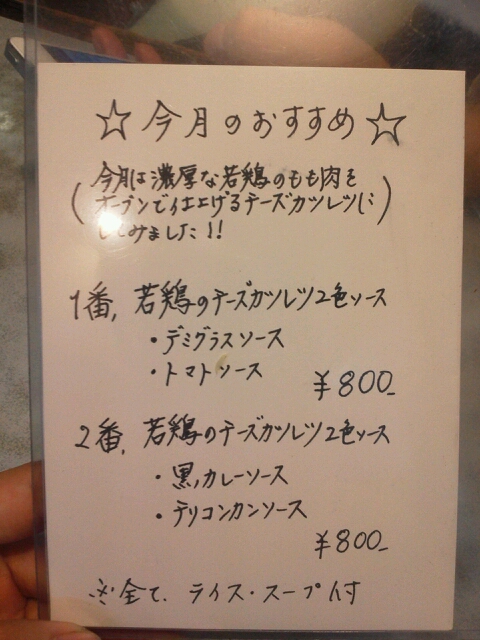 ☆今月のおすすめ☆
(今月は濃厚な若鶏のもも肉を
オーブンで仕上げるチーズカツレツに
してみました!!)
1番, 若鶏のチーズカツレツ2色ソース
・デミグラスソース
・トマトソース
¥800-
2番, 若鶏のチーズカツレツ2色ソース
・黒カレーソース
・テリコンカンソース
¥800-
※全て、ライス・スープ付